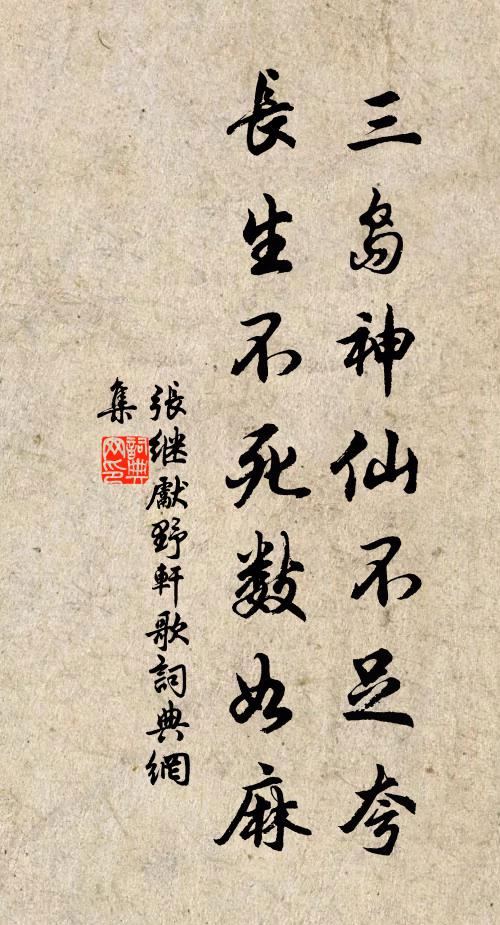 三島神仙不足夸
長生不死數如麻
張继獻野軒歌詞典網
集
詞典网印